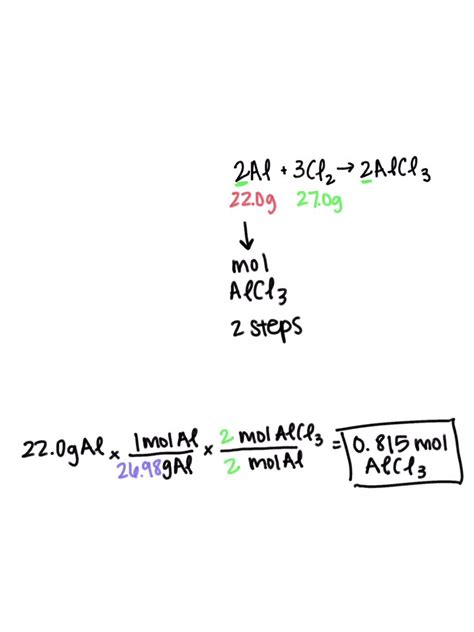 2Al + 3Cl₂ → 2AlCl₃
22.0g 27.0g
↓
mol
AlCl₃
2 steps
22.0gAl × 1molAl/26.98gAl × 2 molAlCl₃/2 molAl = 0.815 mol AlCl₃